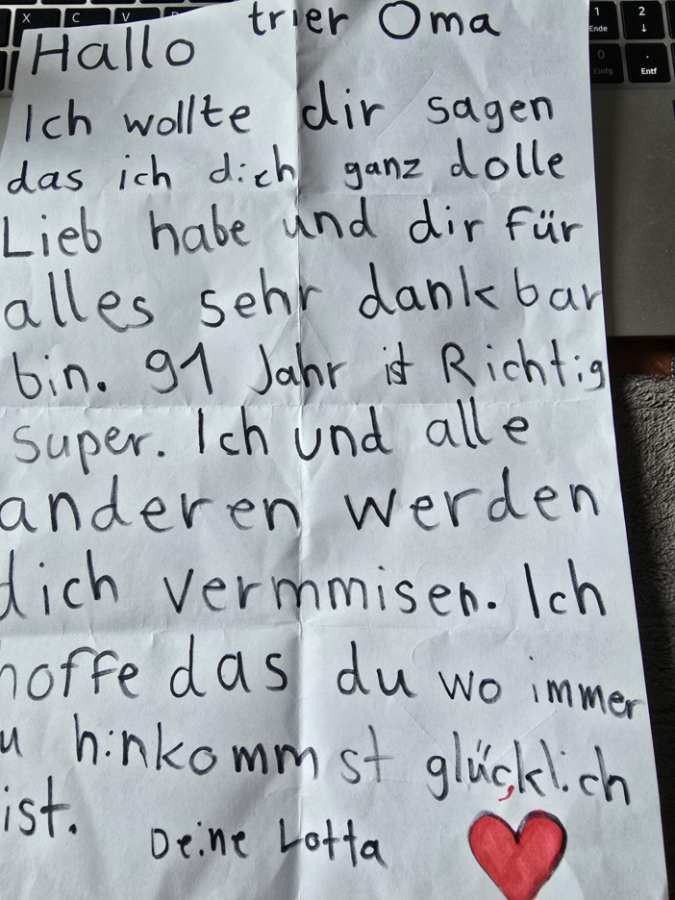 Hallo trier Oma
Ich wollte dir sagen
das ich dich ganz dolle
Lieb habe und dir für
alles sehr dankbar
bin. 91 Jahr ist Richtig
super. Ich und alle
anderen werden
dich vermmisen. Ich
hoffe das du wo immer
u hinkommst glücklich
ist.
Deine Lotta
X C V
1
Ende
2
↓
0
Einfg
.
Entf